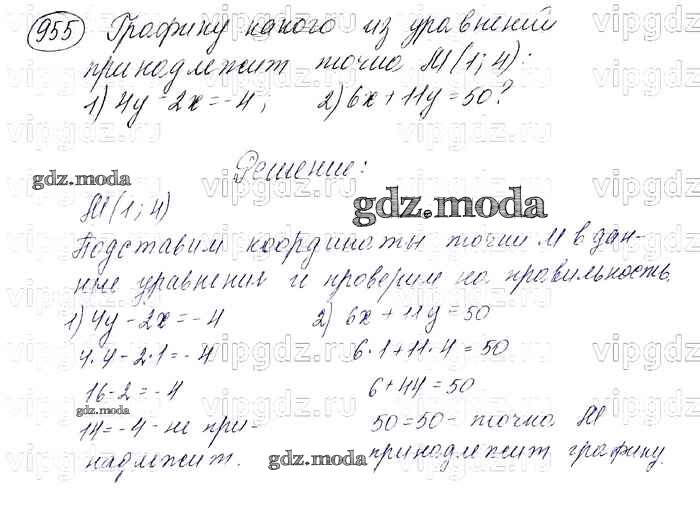 955 Графику какого из уравнений
принадлежит точка М(1; 4):
1) 4y - 2x = -4;   2) 6x + 11y = 50?
Решение:
gdz.moda
М(1; 4)
gdz.moda
Подставим координаты точки М в дан-
ные уравнения и проверим на правильность.
1) 4y - 2x = -4   2) 6x + 11y = 50
4·4 - 2·1 = -4   6·1 + 11·4 = 50
16 - 2 = -4   6 + 44 = 50
gdz.moda
14 = -4 - не при-   50 = 50 - точка М
надлежит.   принадлежит графику.
gdz.moda
vipgdz